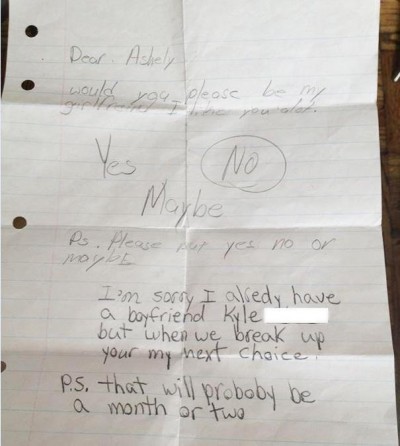 Dear. Ashely
would you please be my
girlfriend I like you alot.
Yes NO
Maybe
Ps. Please put yes no or
maybe
I'm sorry I alredy have
a boyfriend Kyle
but when we break up
your my next choice.
P.S. that will proboby be
a month or two